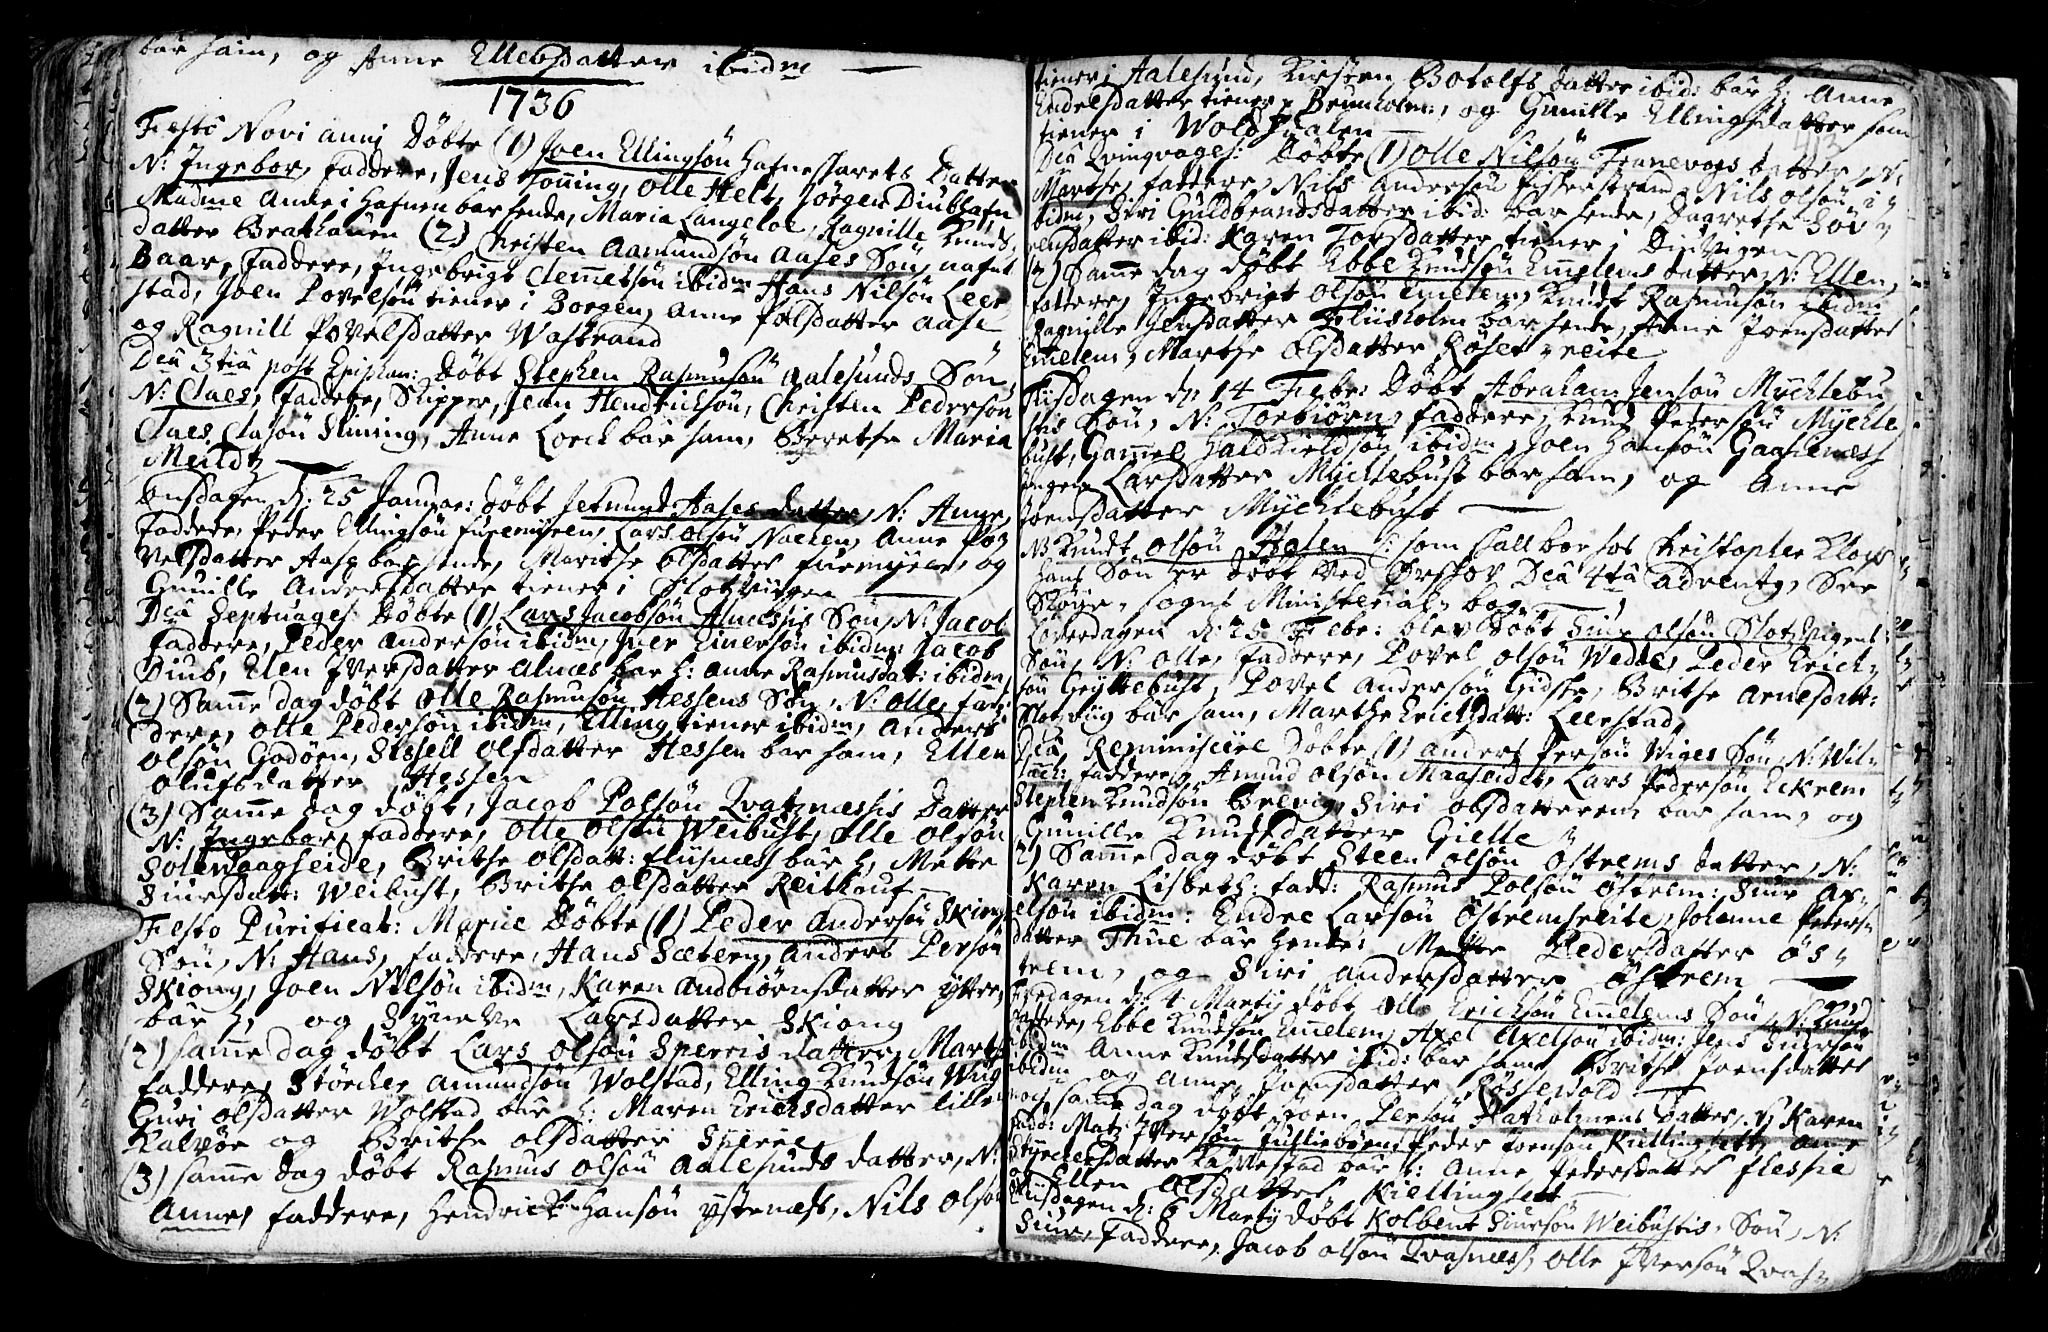 bar ham, og Anne Ellebsdatter ibidm
1736
Festo Novi anni Döbte (1) Joen Ellingsön Hafneskarets Datter
N: Ingebor, faddere, Jens Tönning, Olle Helt, Jörgen Diubhafn
Madme Anne i Hafnen bar hende, Maria Langeloe, Ragnille Knuds
datter Brathauen (2) Christen Aamundsön Aases Sön nafnl
Baar, faddere, Ingebrigt Clemetsön ibidm Hans Nilsön Leer
stad, Joen Povelsön tiener i Borgen, Anne Polsdatter Aase
og Ragnill Povelsdatter Wastrand
Dca 3tia post Epiphan: Döbt Stephen Rasmusön Aalesunds Sön
N: Claes, faddere, Skipper, Jean Hendricksön, Christen Pedersön
Claes Clasön Slining, Anne Lorck bar ham, Berethe Maria
Meildz
Onsdagen d: 25 Januar: döbt Jetmund Aases datter, N: Anne,
faddere, Peder Ellingsön furemyren, Lars olsön Nacken, Anne Po-
velsdatter Aase bar hende, Marithe olsdatter furemyren, og
Gunille Andersdatter tiener i Slotzviigen
Dca Septuages: Döbte (1) Lars Jacobsön Alnessis Sön, N: Jacob
faddere, Peder Andersön ibidm, Iver Einersön ibidm: Jacob
Diub, Elen Iversdatter Alnes bar h: Anne Rasmusdat: ibidm
(2) Samme dag döbt olle Rasmusön Hessens Sön, N: olle, fad-
dere, olle Pedersön ibidm, Elling tiener ibidm, Anders
olsön Godöen, Sissell olsdatter Hessen bar ham, Ellen
olufsdatter Hessen
(3) Samme dag döbt, Jacob Polsön Qvatznessis Datter
N: Ingebor, faddere, olle olsön Weibust, olle olsön
Solewaagseide, Brithe olsdatt: fliisness bar h, Mette
Siursdatt: Weibust, Brithe olsdatter Reithouf
Festo Purificat: Mariæ Döbte (1) Peder Andersön Skiong
Sön, N: Hans, faddere, Hans Sætern, Anders Persön
Skiong, Joen Nilsön ibidm, Karen Andbiörnsdatter ytter
bar h, og Synneve Larsdatter Skiong
(2) samme dag döbt Lars olsön Sperris datter, Marthe
faddere, Störcker Amundsön Wolstad, Elling Knudsön Wiig
Guri olsdatter Wolstad bar h: Maren Ericksdatter lille
Kalvöe og Brithe olsdatter Sperre
(3) samme dag döbt Rasmus olsön Aalesunds datter, N:
Anne, faddere, Hendrick Hansön ystenes, Nils olsön
tiener i Aalesund, Kirsten Botolfs datter ibid: bar h, Anne
Endresdatter tiener p Brunholm:, og Gunille Ellingsdatter som
tiener i Woldsdalen
413
Dca Qvinqvages: Döbte (1) olle Nilsön Trannevogs datter, N:
Marthe, faddere, Nils Andersön fisterstrand, Nils olsön i-
bidm, Siri Guldbrandsdatter ibid: bar hende, Dagrethe Sör-
rensdatter ibid: Karen Torsdatter tiener i
2) Samme dag döbt Ebbe Knudsön Emelems datter N: Ellen,
faddere, Ingebrigt olsön Emelem, Knudt Rasmusön ibidm
Ragnille Jensdatter Fliisholm bar hende, Anne Joensdatter
Emelem, Marthe olsdatter Röset-reite
Tiisdagen d: 14 Febr: döbt Abraham Jensön Myklebu
stis Sön, N: Torbiörn, faddere, Knud Pedersön Mykle
bust, Gammel Haldkieldsön ibidm, Joen Hansön Gaaseness
Ingen Larsdatter Myklebust bar ham, og Anne
Joensdatter Myklebust
NB Knudt olsön Aasen som kall bor hos Christopher Klops
hans Sön er döbt ved Örschov Dca 4ta adventg, See
Stöyr- sogns Ministerial-bog
Löverdagen d: 25 Febr: blev döbt Siur olsön Slotzvigens
Sön, N: olle, faddere, Povel olsön Wedde, Peder Erich-
sön Gryttebust, Povel Andersön Gidsche, Brithe Arnesdatt:
Slotzviig bar ham, Marthe Ericksdatt: Leerstad
Dca Reminiscere Döbte (1) Anders Persön Wiges Sön, N: Wil-
sach: faddere, Amund olsön Maaseidet, Lars Pedersön Eckrem
Stephen Knudsön Brevig, Siri olsdatter em bar ham, og
Gunille Knutsdatter Gielle
2) Samme dag döbt Steen olsön Östrems datter, N:
Karen Lisbeth: fadd: Rasmus Polsön Östrem: Siur Ax-
elsön ibidm: Endre Larsön Östremsreite, Johanne Peders-
datter Thue bar hende: Mette Pedersdatter Ös-
trem, og Siri Andersdatter Östrem
fredagen d: 4 Martij döbt olle Ericksön Emelems Sön, N: Knud
faddere, Ebbe Knudsön Emelem, Axel Axelsön ibidm: Jens Siursön
ibidm Anne Knudsdatter ibid: bar ham, Brithe Joensdatter
ibidm og Anne Joensdatter Rössevold
noch samme dag döbt Joen Persön Hatholmens datter, N: Karen
fadd: Mats Iversön Jullieböen, Peder Joensön Kiellingsett, Ane
Störckersdatter Rammestad bar h: Anne Pedersdatter flessie
og Ellen olsdatter Kiellingsett
Tiisdagen d: 6 Martij döbt Kolbent Siursön Weibustis Sön, N:
Siur, faddere, Jacob olsön Qvasness, olle Iversön Qvas-